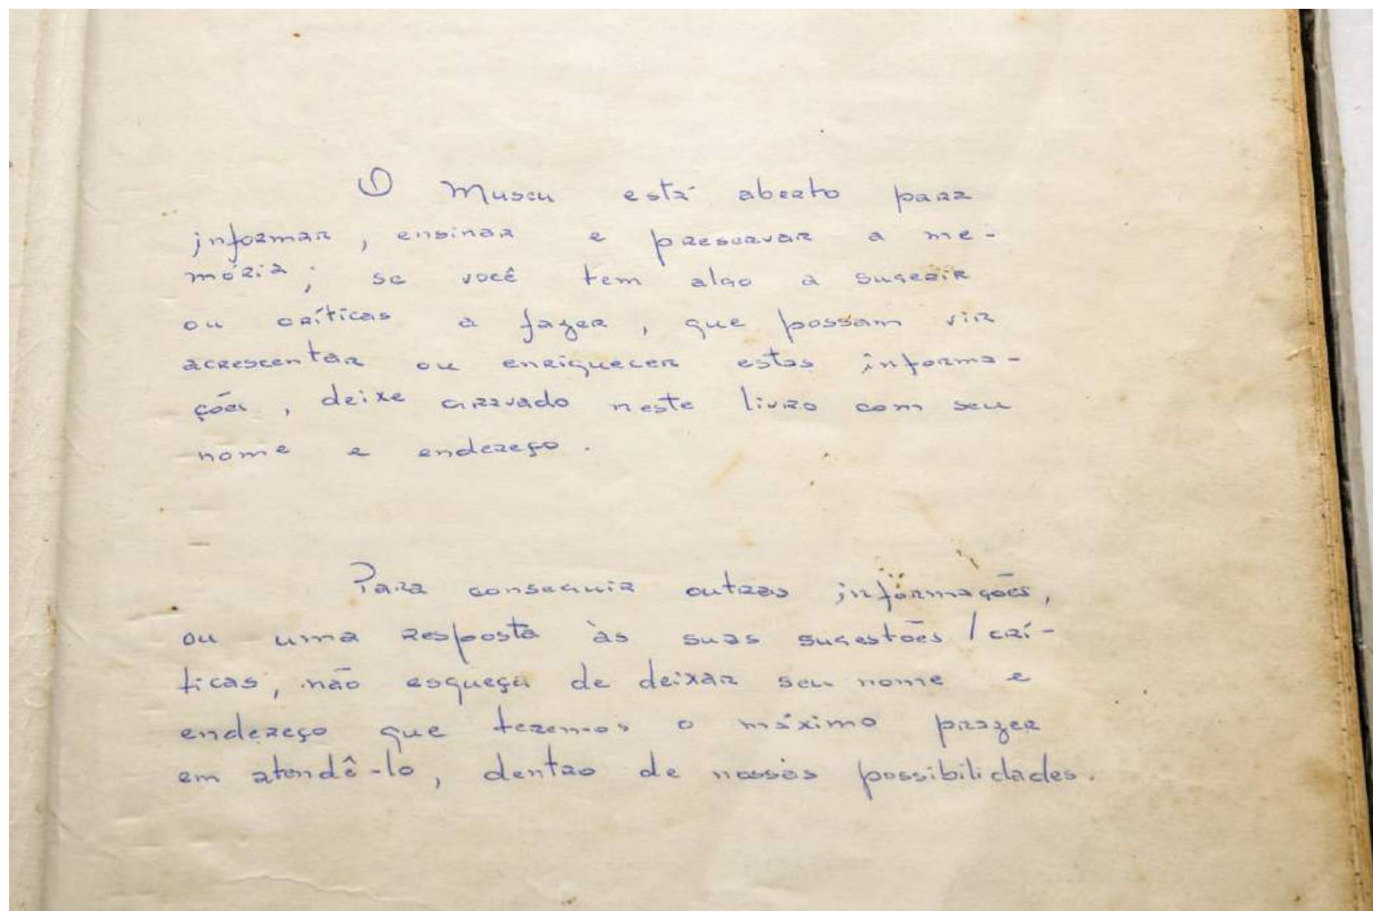 O Museu está aberto para
informar, ensinar e preservar a me-
mória; se você tem algo a sugerir
ou críticas a fazer, que possam vir
acrescentar ou enriquecer estas informa-
ções, deixe gravado neste livro com seu
nome e endereço.
Para conseguir outras informações,
ou uma resposta às suas sugestões/crí-
ticas, não esqueça de deixar seu nome e
endereço que teremos o máximo prazer
em atendê-lo, dentro de nossas possibilidades.